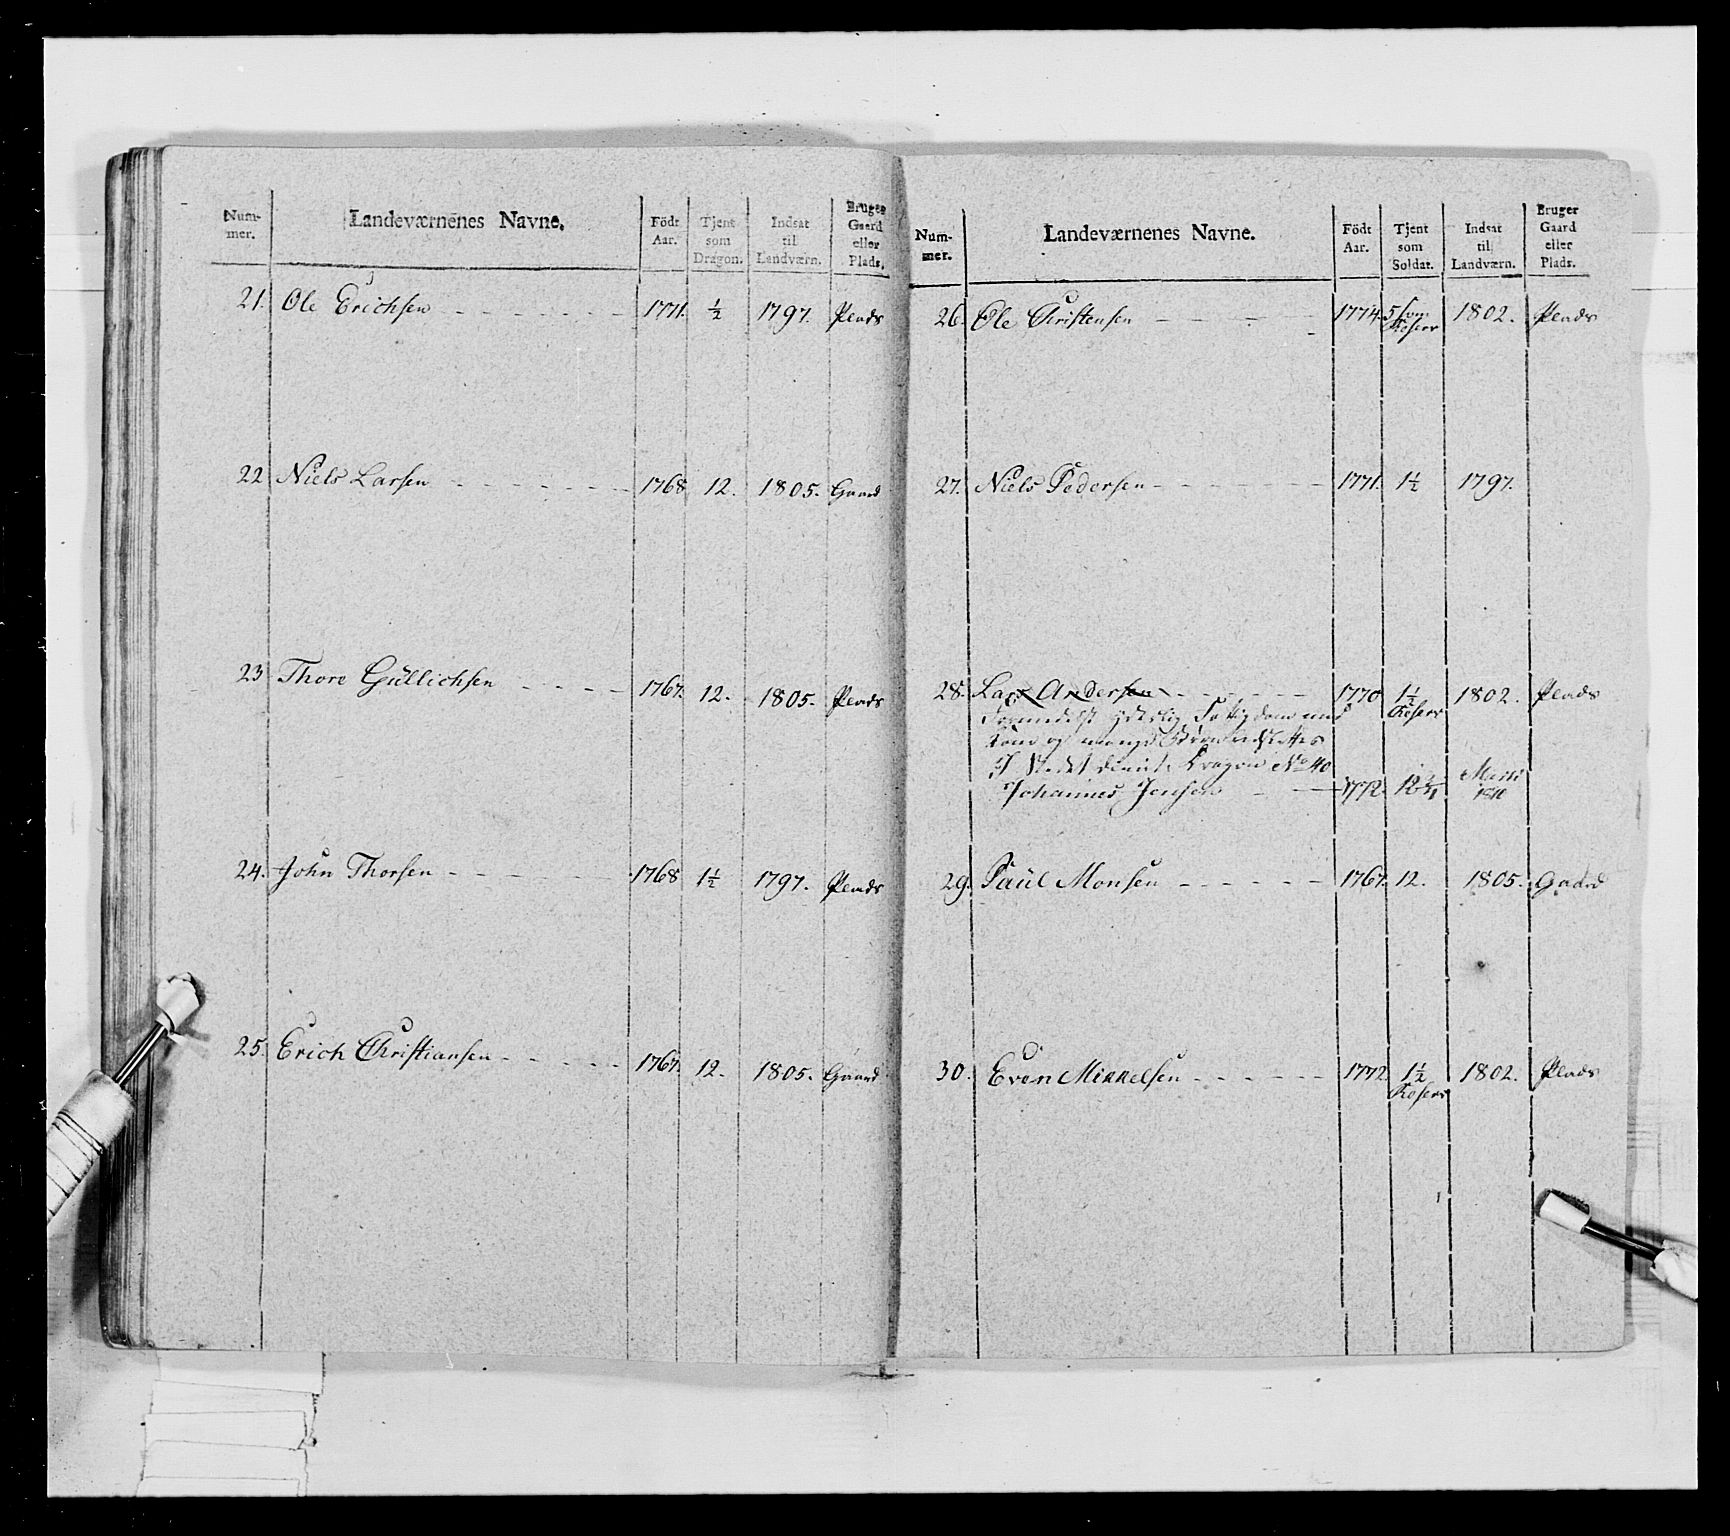 Num-mer. Landeværnenes Navne. Födt Aar. Tjent som Dragon. Indsat til Landværn. Bruger Gaard eller Plads.
21. Ole Erichsen 1771. ½ 1797. Plads
22 Niels Larsen 1768 12. 1805. Gaard
23 Thore Gullichsen 1767. 12. 1805. Plads
24. John Thorsen 1768 1½ 1797. Plads
25. Erich Christiansen 1767. 12. 1805. Gaard
Num-mer. Landeværnenes Navne. Födt Aar. Tjent som Soldat. Indsat til Landværn. Bruger Gaard eller Plads.
26. Ole Christensen 1774. 5 som Reserv 1802. Plads
27. Niels Pedersen 1771. 1½ 1797.
28. Lars Andersen 1770 1½ Reserv 1802. Plads
Formedelst yderlig Fattigdom med
Kone og mange Børn udslettes
I Stedet Dragon No 40
Johannes Jensen 1772. Marti 1810
29. Paul Monsen 1767. 12. 1805. Gaard
30. Even Mikkelsen 1772 1½ Reserv 1802. Plads